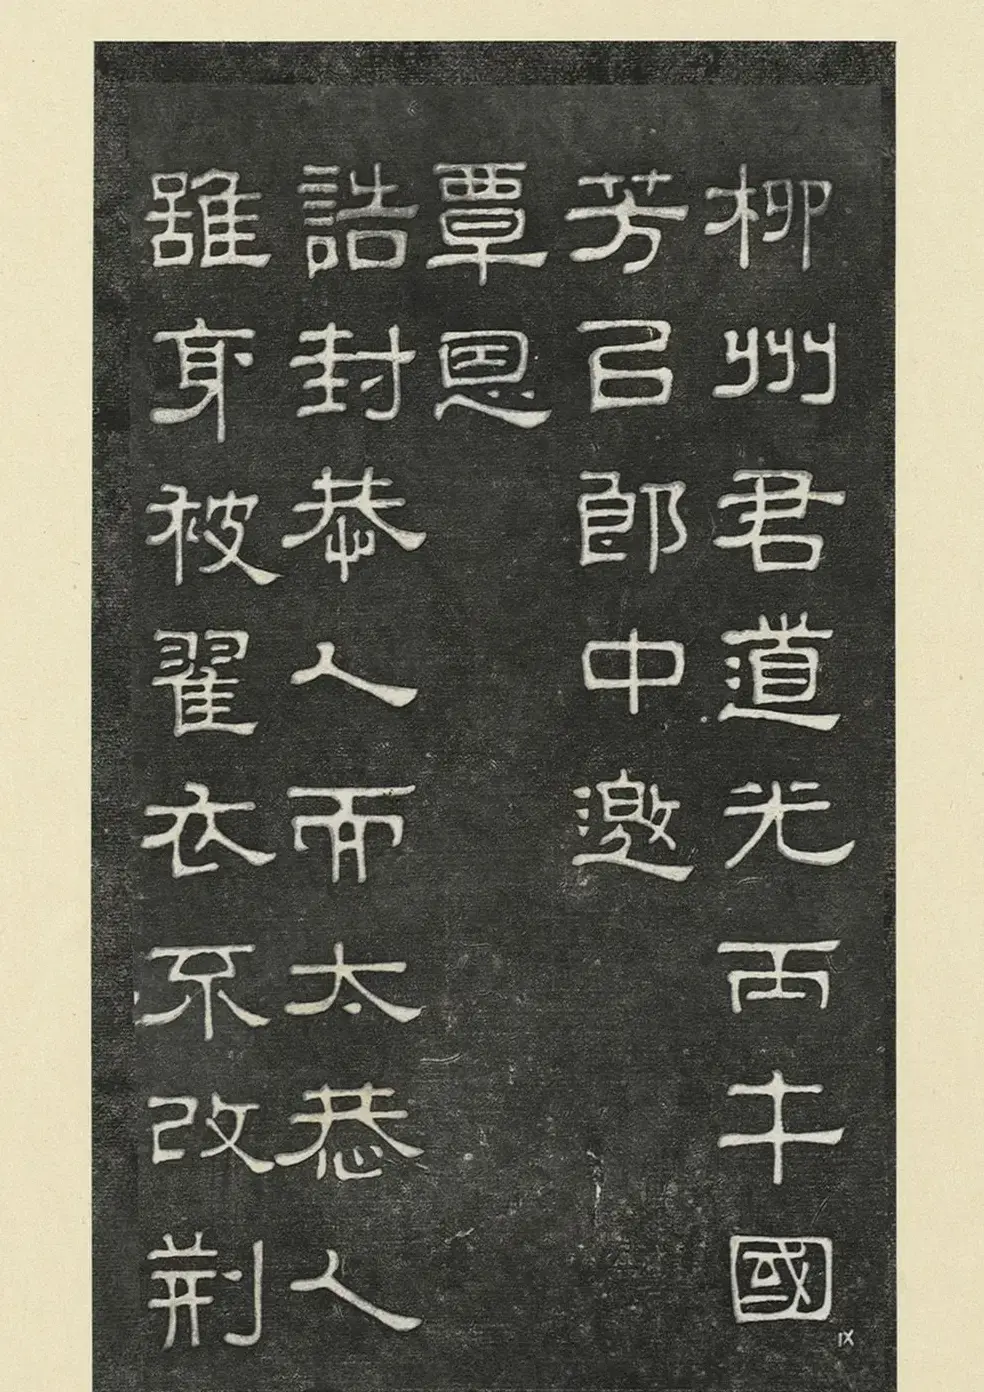 柳州君道光丙午國
芳㠯郎中邀
覃恩
誥封恭人而太恭人
雖身被翟衣不改荆